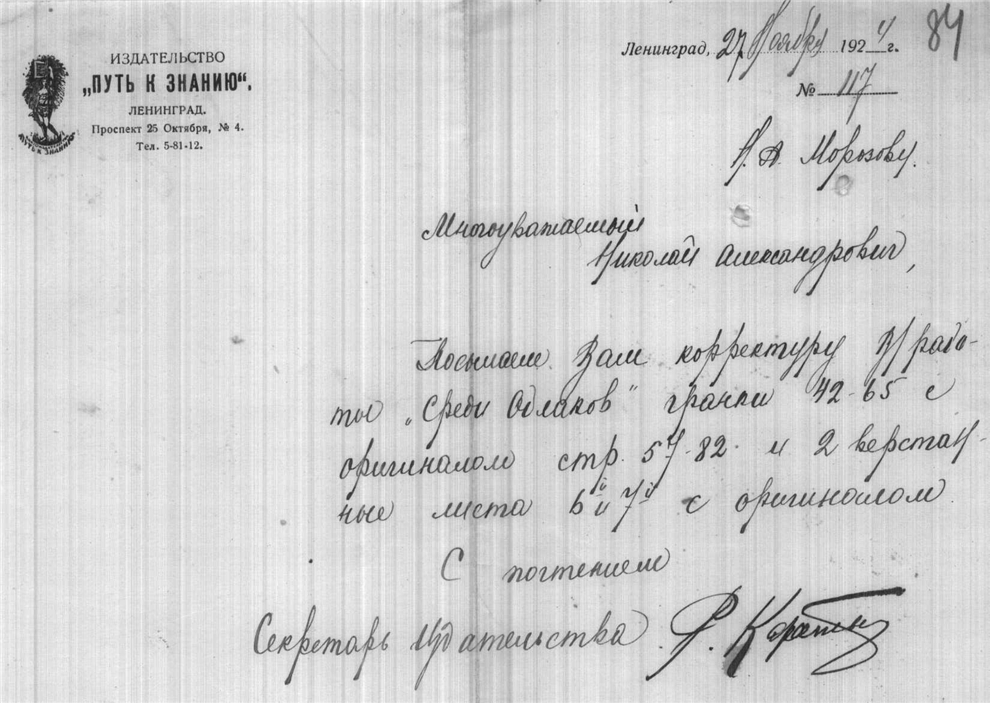 84
Ленинград, 27 Ноября 1924 г.
№ 117
ИЗДАТЕЛЬСТВО
„ПУТЬ К ЗНАНИЮ“.
ЛЕНИНГРАД.
Проспект 25 Октября, № 4.
Тел. 5-81-12.
ПУТЬ К ЗНАНИЮ
Н. А. Морозову.
Многоуважаемый
Николай Александрович,
Посылаем Вам корректуру В/ рабо-
ты „Среди Облаков" гранки 42-65 с
оригиналом стр. 57-82. и 2 верстан-
ные листа 6й и 7й с оригиналом
С почтением
Секретарь Издательства